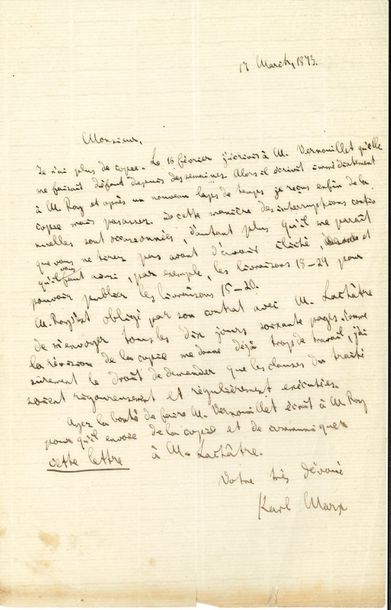 17 March, 1873.
Monsieur,
Je n'ai plus de copie. Le 16 février j'écrivis à M. Vernouillet qu'elle
me faisait défaut depuis des semaines. Alors il écrivit immédiatement
à M. Roy et après un nouveau laps de temps je reçus enfin de la
copie mais pas assez. De cette manière des interruptions conti-
nuelles sont occasionnées, d'autant plus qu'il me paraît
que vous ne tirez pas avant d'avoir cliché, et
qu'il faut avoir, par exemple, les livraisons 15-24 pour
pouvoir publier les livraisons 15-20.
M. Roy est obligé par son contrat avec M. Lachâtre
de m'envoyer tous les dix jours soixante pages. Comme
la révision de la copie me donne déjà trop de travail, j'ai
sûrement le droit de demander que les clauses du traité
soient rigoureusement et régulièrement exécutées.
Ayez la bonté de faire M. Vernouillet écrire à M. Roy
pour qu'il envoie de la copie et de communiquer
cette lettre à M. Lachâtre.
Votre très dévoué
Karl Marx